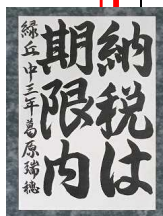 納税は
期限内
緑丘中三年葛原瑞穂